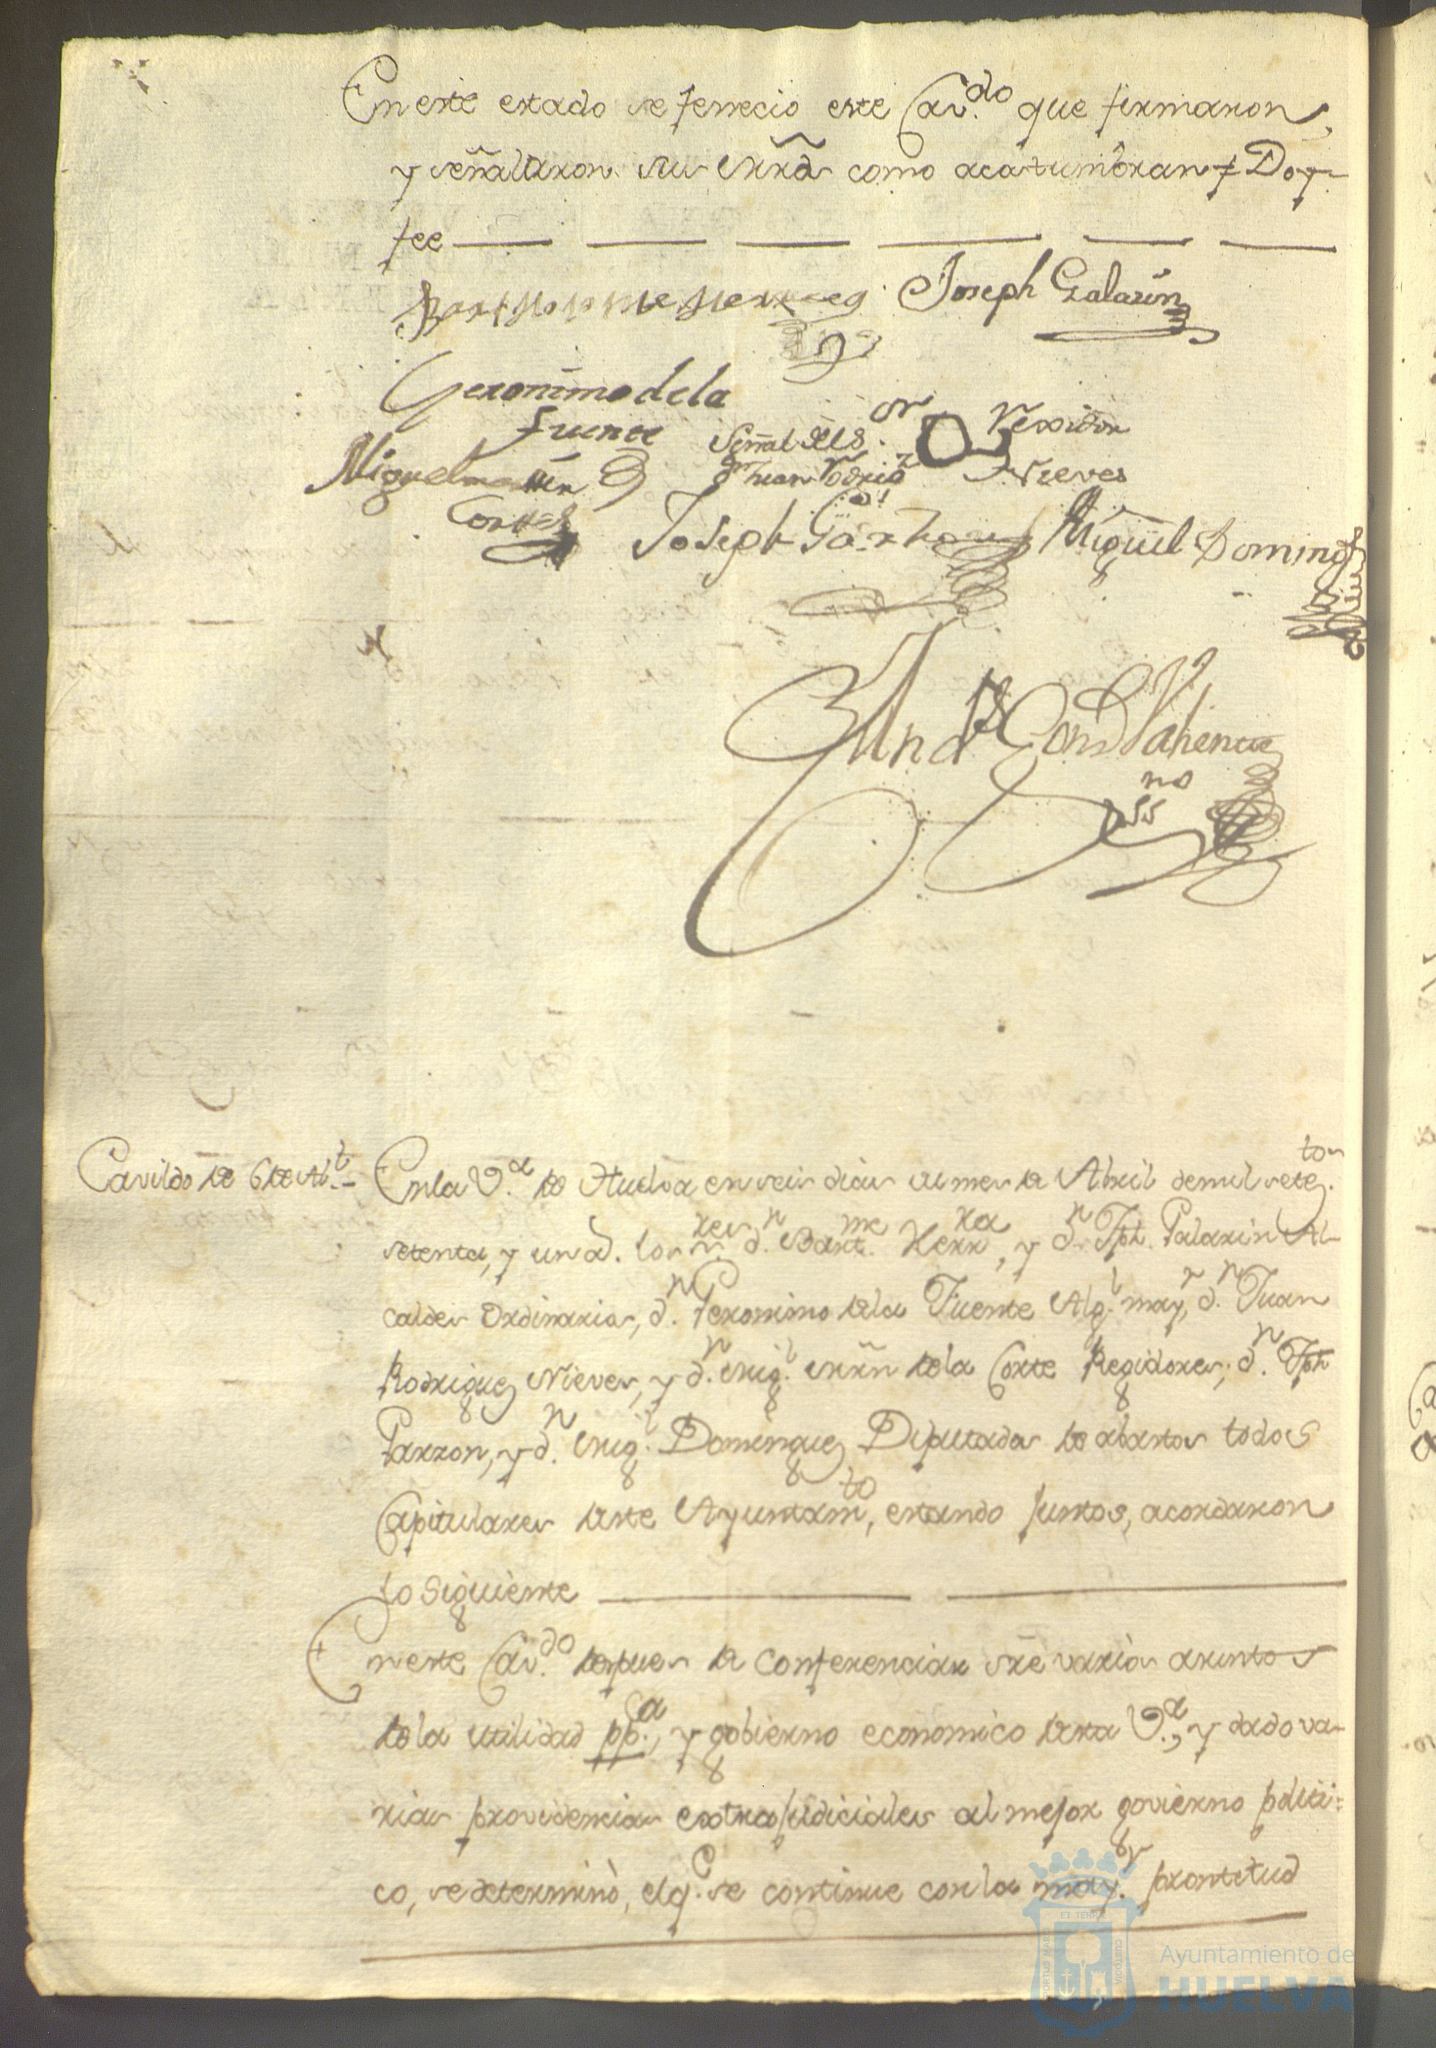 En este estado se fenecio este Cav.do que firmaron,
y señalaron sus mrds como acostumbran, Doy
fee
Bartholome Herrera Joseph Galarin
Geronimo de la
fuente Señal del S.or Rexidor
Miguel mrn Juan Rodrig.z Nieves
Cortes Joseph Garzon Miguel Doming.z
And.s Gons Valiente
ss.no
Cavildo de 6 de Ab.l
En la V.a de Huelva en seis dias del mes de Abril de mil setez.tos
setenta, y un a. los s.res d.n Bart.me Herr.ra, y d.n Jph. Galarin Al-
caldes Ordinarios, d.n Geronimo de la Fuente Alg.l may.r, d.n Juan
Rodriguez Nieves, y d.n Mig.l Mrn de la Corte Regidores, d.n Jph
Garzon, y d.n Mig.l Dominguez Diputados de abastos todos
Capitulares deste Ayuntam.to, estando juntos, acordaron
lo siguiente
En este Cav.do despues de conferenciar sre varios asuntos
de la utilidad pp.ca, y gobierno economico desta V.a, y dado va-
rias providencias extrajudiciales al mejor govierno politi-
co, se determinò, el q.e se continue con la may.or prontitud
Ayuntamiento de
HUELVA